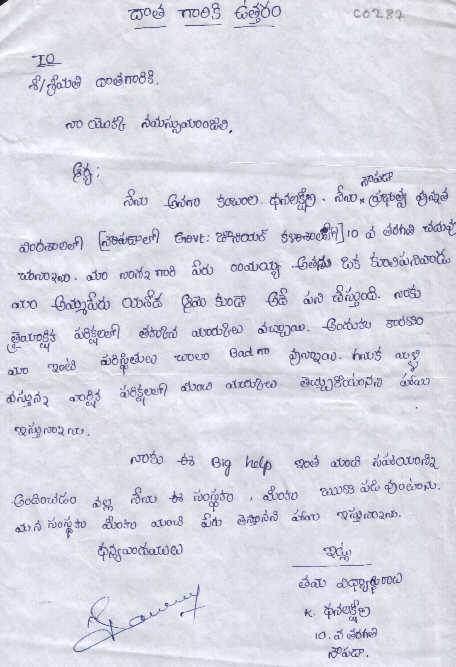 దాత గారికి ఉత్తరం C0282
TO
శ్రీ/శ్రీమతి దాతగారికి.
నా యొక్క నమస్సుమాంజలి.
ఆర్య;
నేను అనగా కంబాల ధనలక్ష్మి. నేను సౌపడా ప్రభుత్వ వున్నత
పాఠశాలలో [సౌపడాలో Govt: జూనియర్ కళాశాలలో] 10 వ తరగతి చదువు
చున్నాను. మా నాన్న గారి పేరు రామయ్య అతను ఒక కూలిపనివాడు
మా అమ్మపేరు ఆమె కుడా అదే పని చేస్తుంది. నాకు
త్రైమాసిక పరిక్షలలో తక్కువ మార్కులు వచ్చాయి. అందుకు కారణం
మా ఇంటి పరిస్థితులు చాలా Bad గా వున్నాయి. గనుక మళ్ళి
వస్తున్న వార్షిక పరిక్షలలో మంచి మార్కులు తెచ్చుకుంటానని హామి
ఇస్తున్నాను.
నాకు ఈ Big help ఇంత మంచి సహాయాన్ని
అందించడం వల్ల నేను ఈ సంస్థకు, మీకు ఋణ పడి వుంటాను.
మన సంస్థకు మీకు మంచి పేరు తెస్తానని హామి ఇస్తున్నాను.
ధన్యవాదములు
ఇట్లు
తమ విధ్యార్థురాలు
K. ధనలక్ష్మి
10. వ తరగతి
సౌపడా.